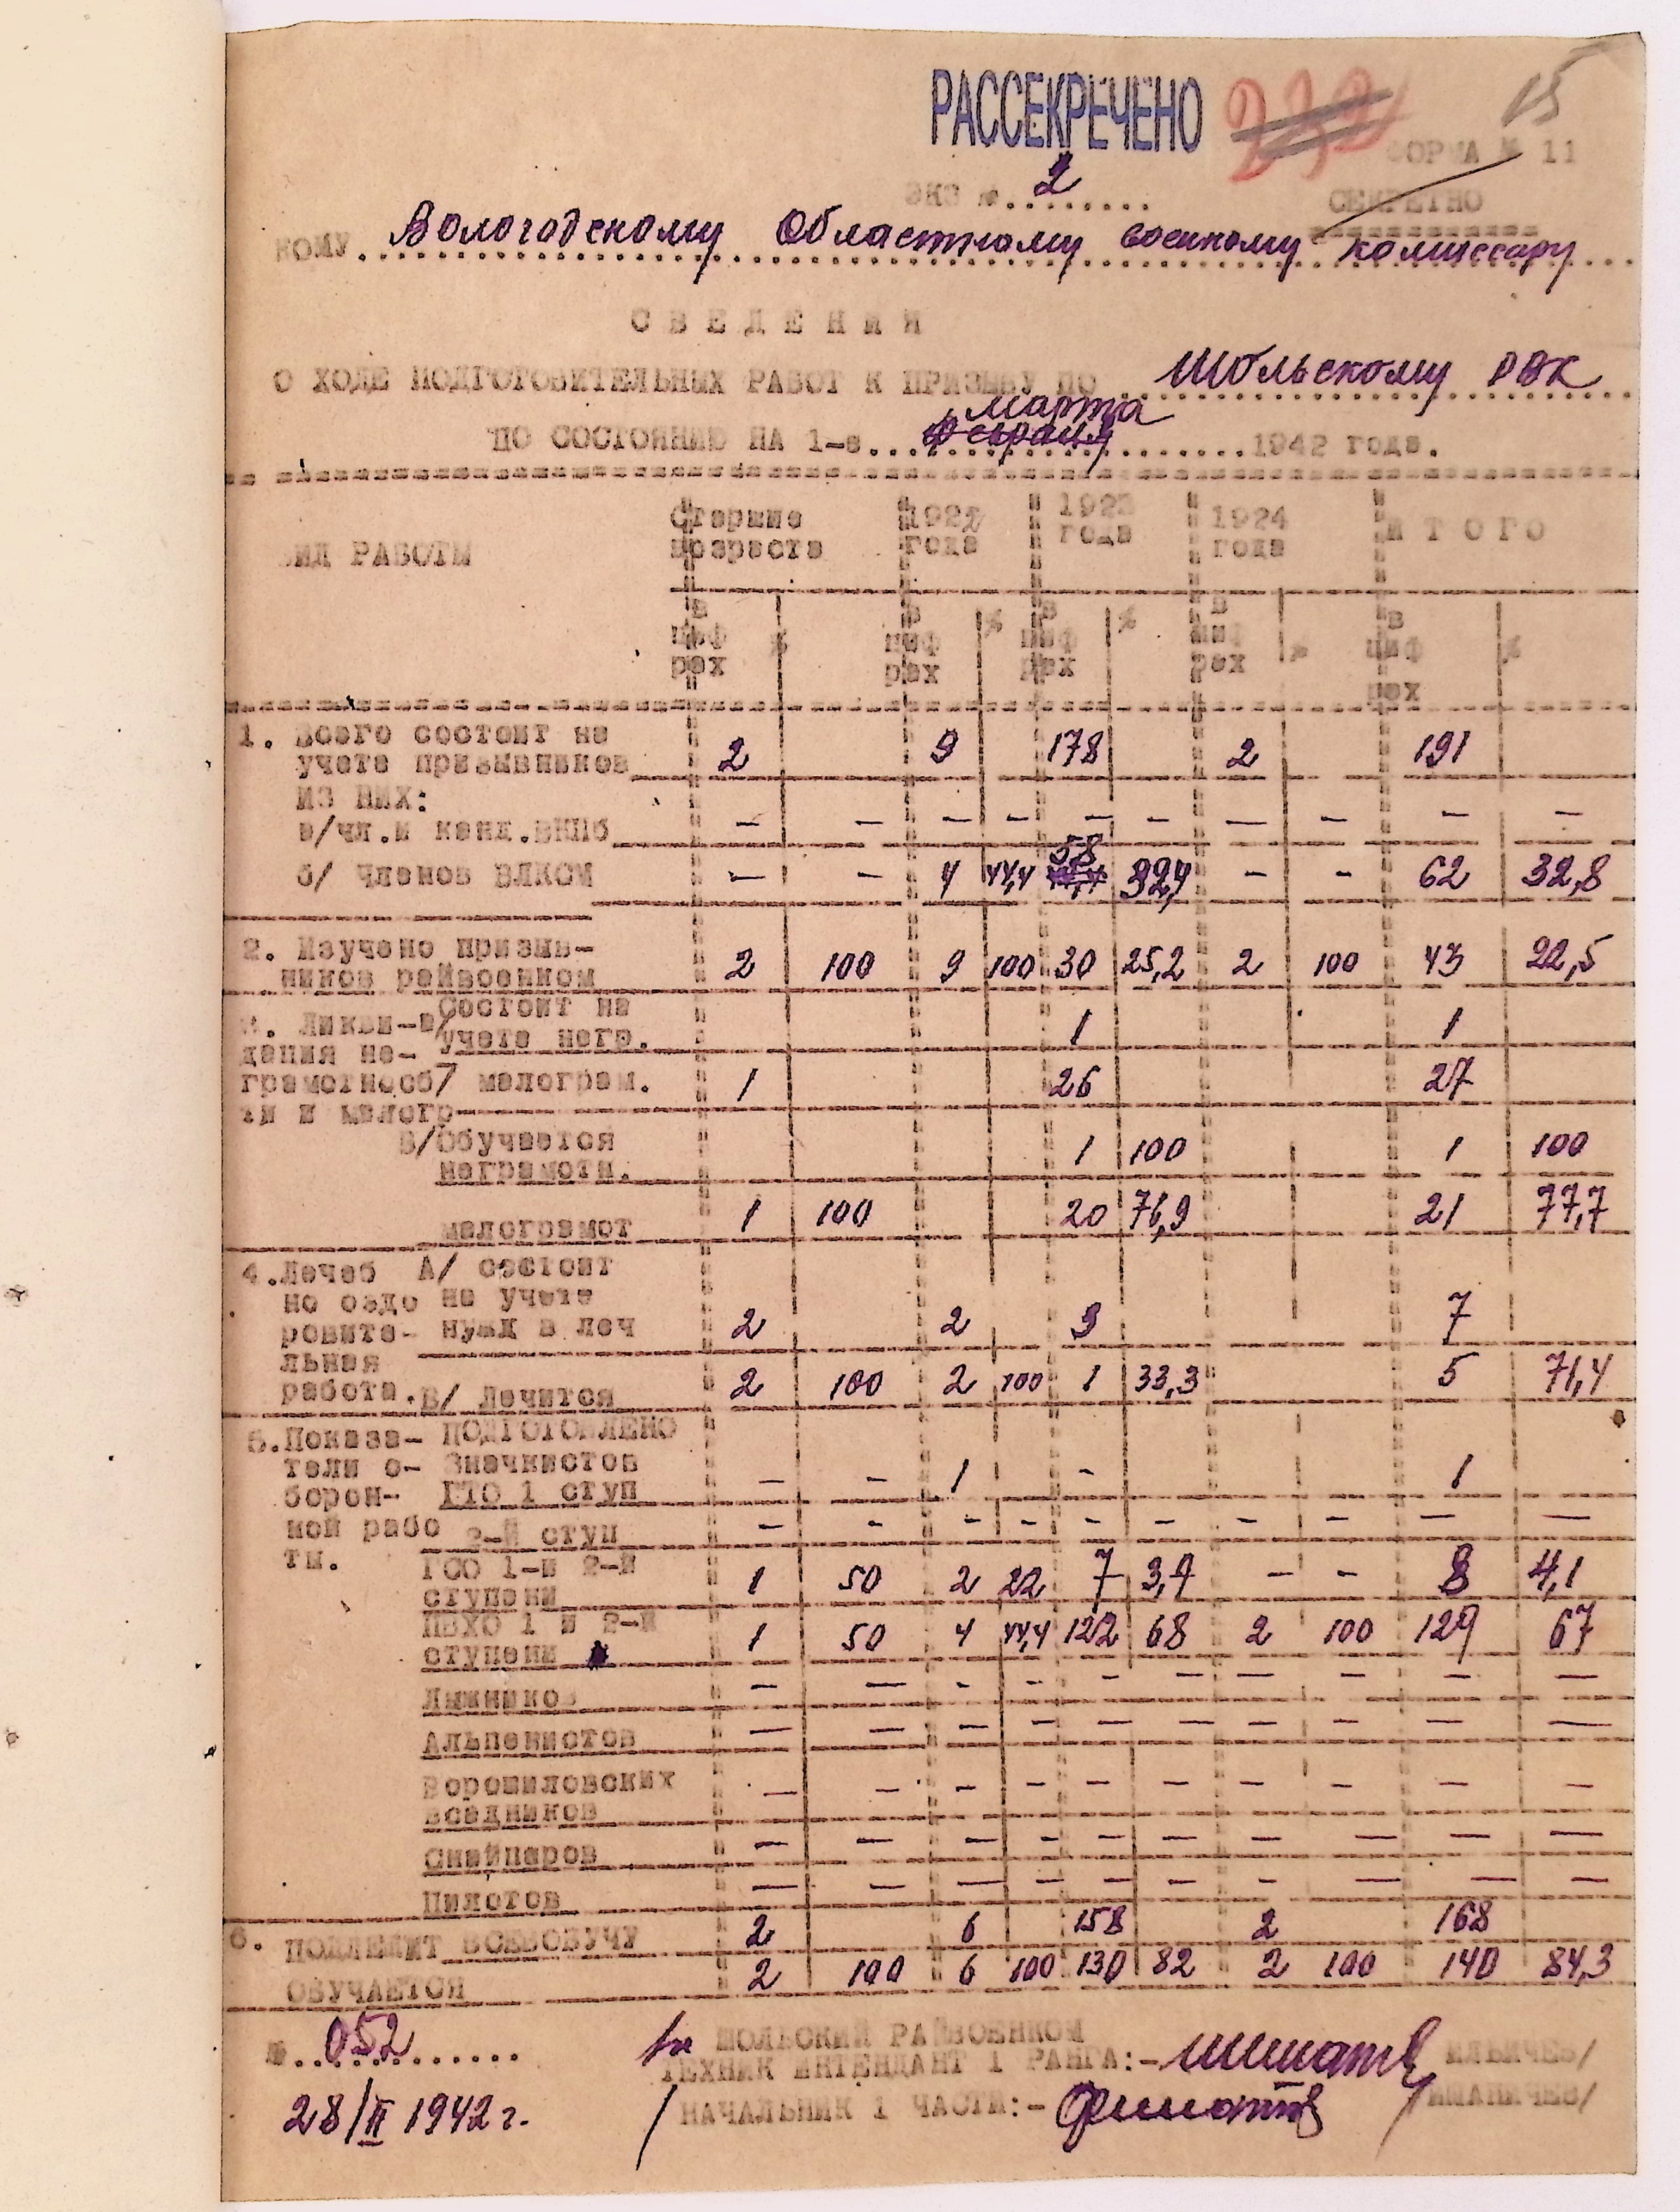 РАССЕКРЕЧЕНО
15
ФОРМА № 11
ЭКЗ №. 2 ........
СЕКРЕТНО
КОМУ. Вологодскому Областному военному комиссару
С В Е Д Е Н И Я
О ХОДЕ ПОДГОТОВИТЕЛЬНЫХ РАБОТ К ПРИЗЫВУ ПО Шольскому РВК
марта
ПО СОСТОЯНИЮ НА 1-е... февраля .......1942 года.
ВИД РАБОТЫ Старшие возраста 1922 года 1923 года 1924 года И Т О Г О
в циф рах % в циф рах % в циф рах % в циф рах % в циф рах %
1. Всего состоит на
учете призывников 2 9 178 2 191
ИЗ НИХ:
а/чл.и канд.ВКПб — — — — — — — — — —
58
б/ членов ВЛКСМ — — 4 44,4 32,4 - - 62 32,8
2. Изучено призыв-
ников райвоенком 2 100 9 100 30 25,2 2 100 43 22,5
3. Ликви- а/Состоит на
дация не- учете негр. 1 1
грамотнос б/ малограм. 1 26 27
ти и малогр
В/Обучается
неграмотн. 1 100 1 100
малограмот 1 100 20 76,9 21 77,7
4.Лечеб А/ состоит
но оздо на учете
ровите- нужд в леч 2 2 3 7
льная
работа. В/ Лечится 2 100 2 100 1 33,3 5 71,4
5.Показа- ПОДГОТОВЛЕНО
тели о- Значкистов
борон- ГТО 1 ступ — — 1 - 1
ной рабо 2-й ступ — - - - - — - - — —
ты. ГСО 1-и 2-й
ступени 1 50 2 22 7 3,9 - - 8 4,1
ПВХО 1 и 2-й
ступени 1 50 4 44,4 122 68 2 100 129 67
Лыжников — — - - - — — — — —
Альпенистов — — — — — — — — — —
Ворошиловских
всадников — — — — — — — — — —
Снайперов — — — — — — — — — —
Пилотов — — — — — — — — — —
6. ПОДЛЕЖИТ ВСЕВОБУЧУ 2 6 158 2 168
ОБУЧАЕТСЯ 2 100 6 100 130 82 2 100 140 84,3
№.. 052 ........
ШОЛЬСКИЙ РАЙВОЕНКОМ
ТЕХНИК ИНТЕНДАНТ 1 РАНГА:- ИЛЬИЧЕВ/
28/II 1942 г. / НАЧАЛЬНИК 1 ЧАСТИ:- /ИПАТИЧЕВ/